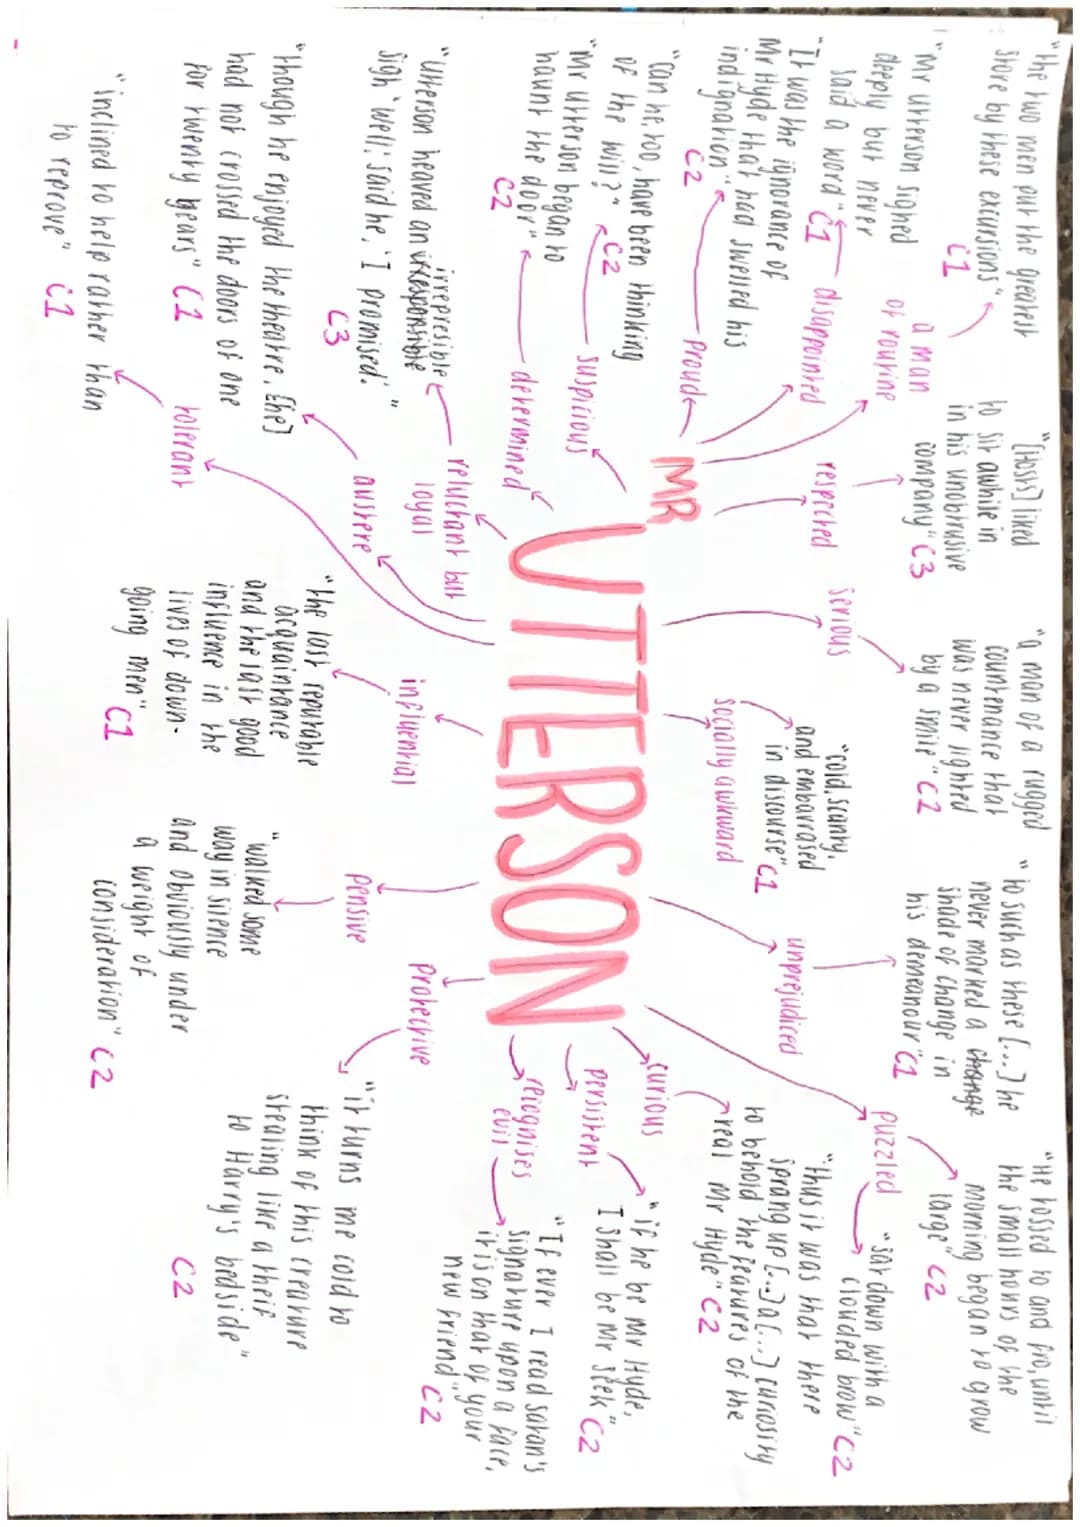 "the two men put the greatest
store by these excursions"
C1
a man
of routine
"Mr Utterson sighed
deeply but never
said a word" C1
disappointed
"It was the ignorance of
Mr Hyde that had swelled his
indignation"
C2
proud
"can he too, have been thinking
of the will?"
C2
suspicious
"Mr Utterson began to
haunt the door"
C2
determined
"Utterson heaved an irresponsible
irrepresible
sigh 'well,' said he, 'I promised.'"
C3
reluctant but
loyal
"though he enjoyed the theatre, [he]
had not crossed the doors of one
for twenty years" C1
austere
"inclined to help rather than
to reprove" C1
tolerant
MR
UTTERSON
"[Hosts] liked
to sit awhile in
in his unobtrusive
company" C3
respected
"a man of a rugged
countenance that
was never lighted
by a smile" C1
serious
"cold, scanty,
and embarassed
in discourse" C1
socially awkward
"to such as these [...] he
never marked a change
shade of change in
his demeanour" C1
unprejudiced
"He tossed to and fro, until
the small hours of the
morning began to grow
large" C2
puzzled
"sat down with a
clouded brow" C2
"thus it was that there
sprang up [...] a [...] curiosity
to behold the features of the
real Mr Hyde" C2
curious
"if he be Mr Hyde,
I shall be Mr Seek"
C2
persistent
"If ever I read satan's
signature upon a face,
it is on that of your
new friend"
C2
recognises
evil
influential
"the last reputable
acquaintance
and the last good
influence in the
lives of down-
going men" C1
pensive
"walked some
way in silence
and obviously under
a weight of
consideration" C2
protective
"it turns me cold to
think of this creature
stealing like a theif
to Harry's bedside"
C2